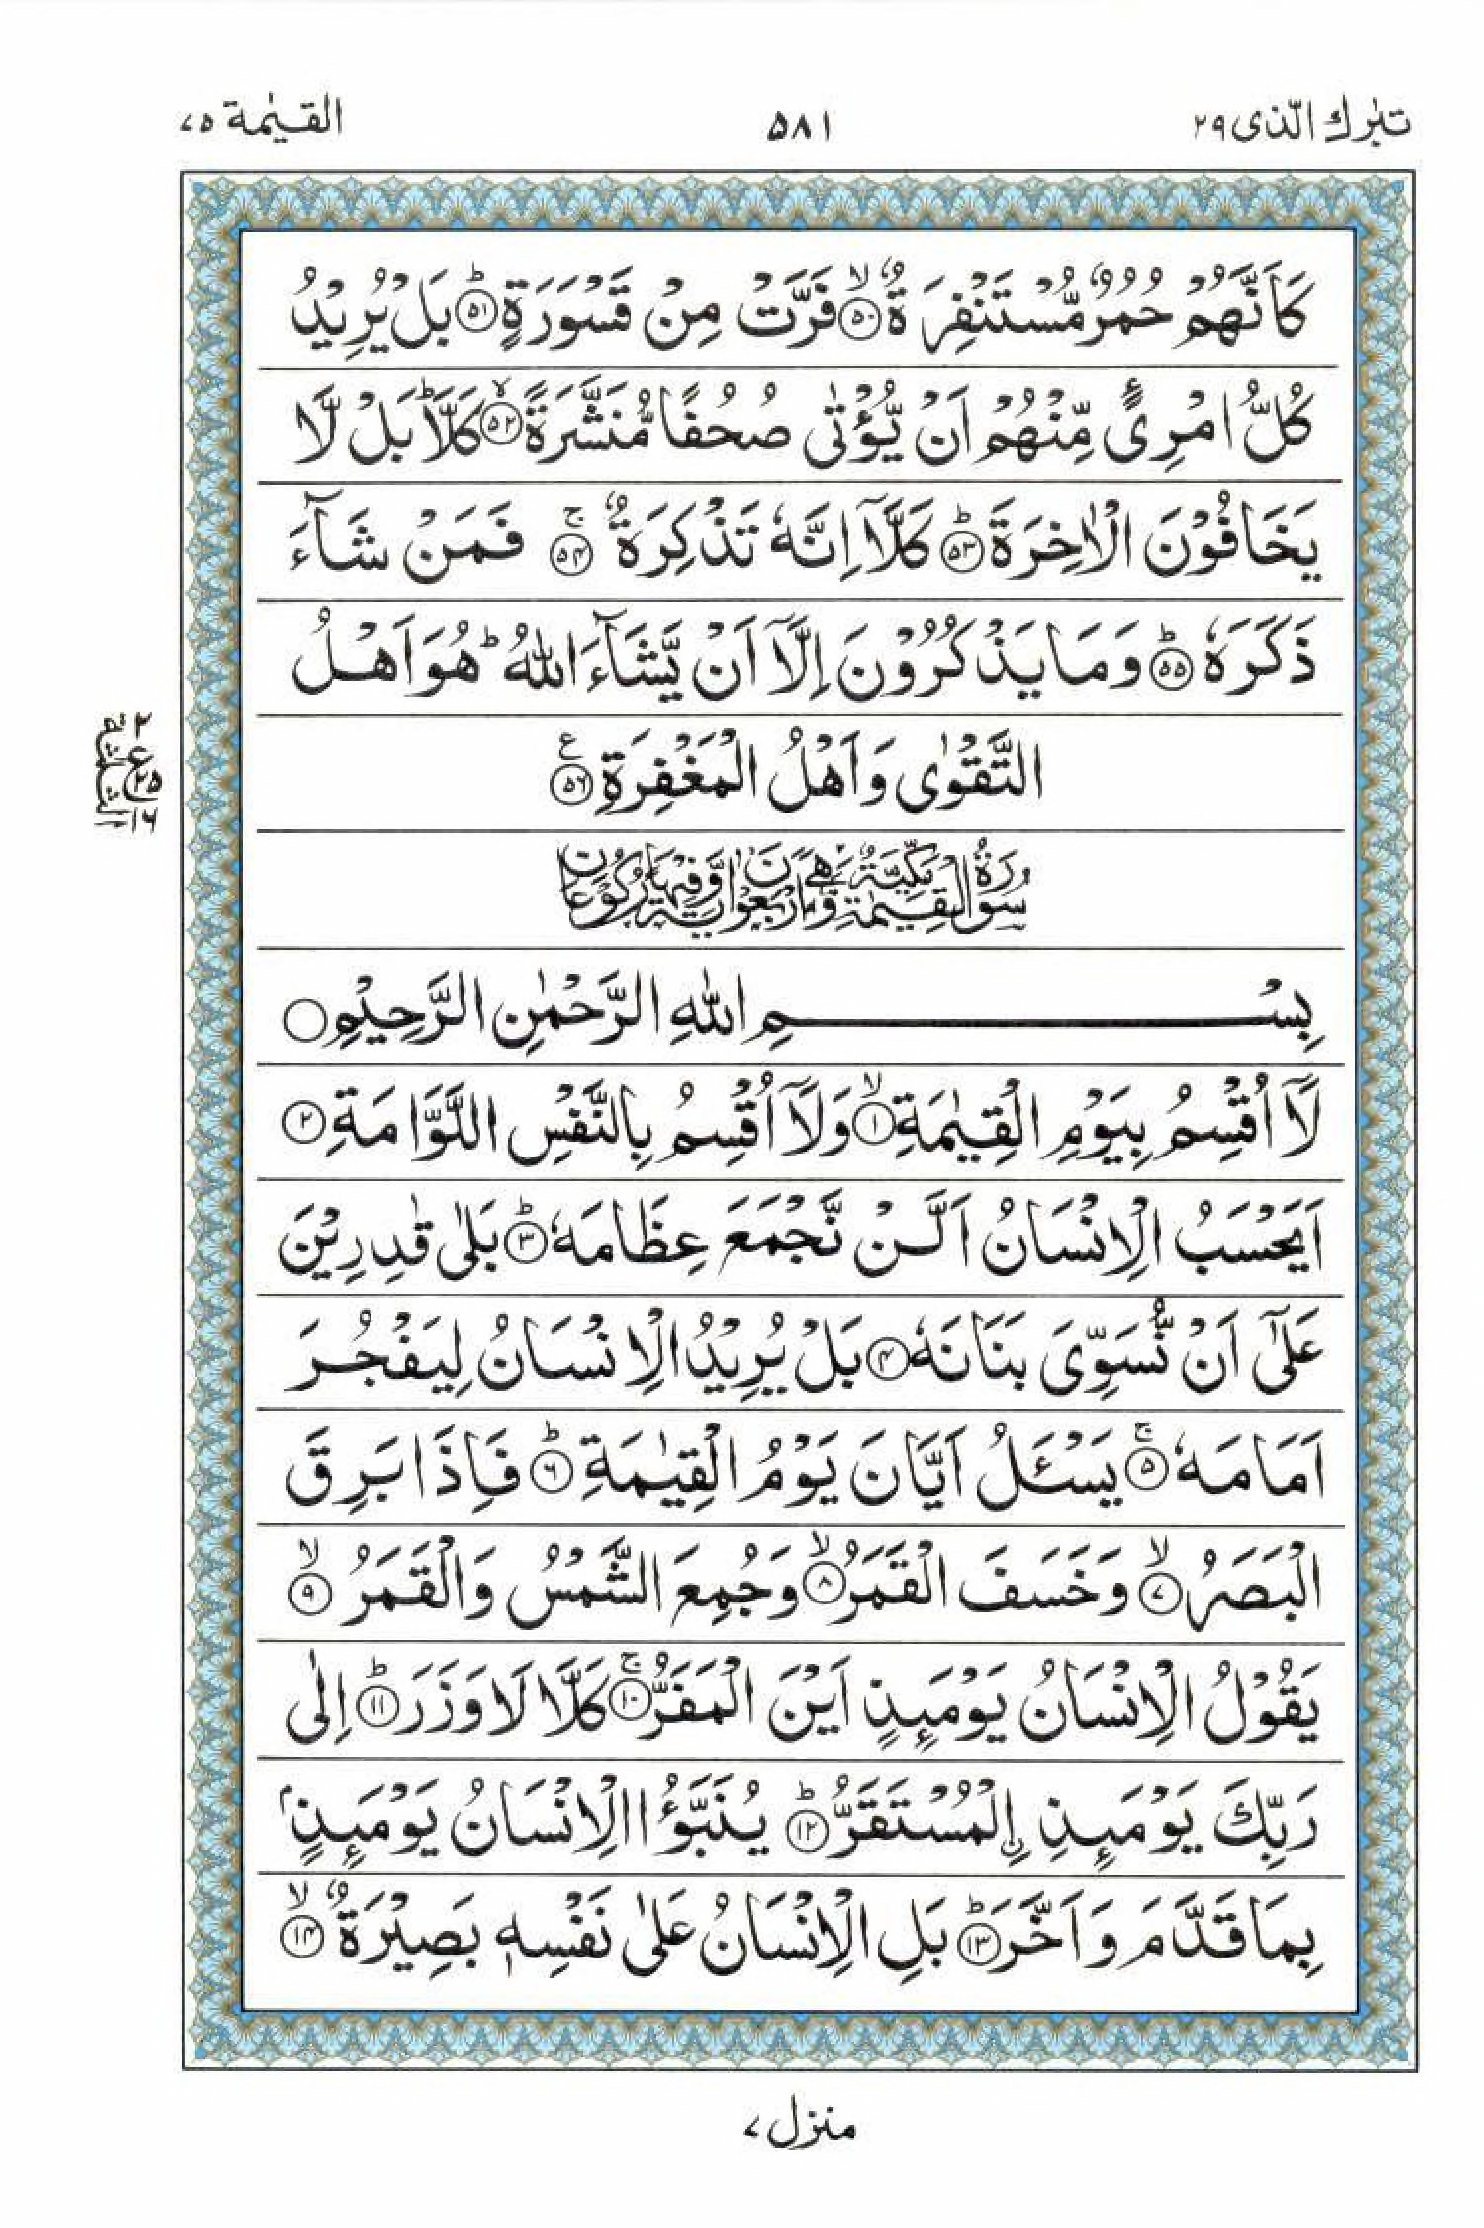 تبٰرك الّذی ٢٩
٥٨١
القیٰمة ٧٥
كَاَنَّهُمْ حُمُرٌ مُّسْتَنْفِرَةٌ ۙ‏﴿٥٠﴾ فَرَّتْ مِنْ قَسْوَرَةٍ ؕ‏﴿٥١﴾ بَلْ يُرِيْدُ
كُلُّ امْرِئٍ مِّنْهُمْ اَنْ يُّؤْتٰى صُحُفًا مُّنَشَّرَةً ۙ‏﴿٥٢﴾ كَلَّا ؕ بَلْ لَّا
يَخَافُوْنَ الْاٰخِرَةَ ؕ‏﴿٥٣﴾ كَلَّاۤ اِنَّهٗ تَذْكِرَةٌ ۚ‏﴿٥٤﴾ فَمَنْ شَآءَ
ذَكَرَهٗ ؕ‏﴿٥٥﴾ وَمَا يَذْكُرُوْنَ اِلَّاۤ اَنْ يَّشَآءَ اللّٰهُ ؕ هُوَ اَهْلُ
التَّقْوٰى وَاَهْلُ الْمَغْفِرَةِ ‏﴿٥٦﴾ ع
٢
ع ٢٥
١٦
الثلٰثة
سُوْرَةُ الْقِيٰمَةِ مَكِّيَّةٌ وَّهِيَ اَرْبَعُوْنَ اٰيَةً وَّفِيْهَا رُكُوْعَانِ
بِسْمِ اللّٰهِ الرَّحْمٰنِ الرَّحِيْمِ ○
لَاۤ اُقْسِمُ بِيَوْمِ الْقِيٰمَةِ ۙ‏﴿١﴾ وَلَاۤ اُقْسِمُ بِالنَّفْسِ اللَّوَّامَةِ ‏﴿٢﴾
اَيَحْسَبُ الْاِنْسَانُ اَلَّنْ نَّجْمَعَ عِظَامَهٗ ؕ‏﴿٣﴾ بَلٰى قٰدِرِيْنَ
عَلٰۤى اَنْ نُّسَوِّيَ بَنَانَهٗ ‏﴿٤﴾ بَلْ يُرِيْدُ الْاِنْسَانُ لِيَفْجُرَ
اَمَامَهٗ ۚ‏﴿٥﴾ يَسْـَٔلُ اَيَّانَ يَوْمُ الْقِيٰمَةِ ؕ‏﴿٦﴾ فَاِذَا بَرِقَ
الْبَصَرُ ۙ‏﴿٧﴾ وَخَسَفَ الْقَمَرُ ۙ‏﴿٨﴾ وَجُمِعَ الشَّمْسُ وَالْقَمَرُ ۙ‏﴿٩﴾
يَقُوْلُ الْاِنْسَانُ يَوْمَىِٕذٍ اَيْنَ الْمَفَرُّ ۚ‏﴿١٠﴾ كَلَّا لَا وَزَرَ ؕ‏﴿١١﴾ اِلٰى
رَبِّكَ يَوْمَىِٕذِ ۨالْمُسْتَقَرُّ ؕ‏﴿١٢﴾ يُنَبَّؤُا الْاِنْسَانُ يَوْمَىِٕذٍۭ
بِمَا قَدَّمَ وَاَخَّرَ ؕ‏﴿١٣﴾ بَلِ الْاِنْسَانُ عَلٰى نَفْسِهٖ بَصِيْرَةٌ ۙ‏﴿١٤﴾
منزل ٧